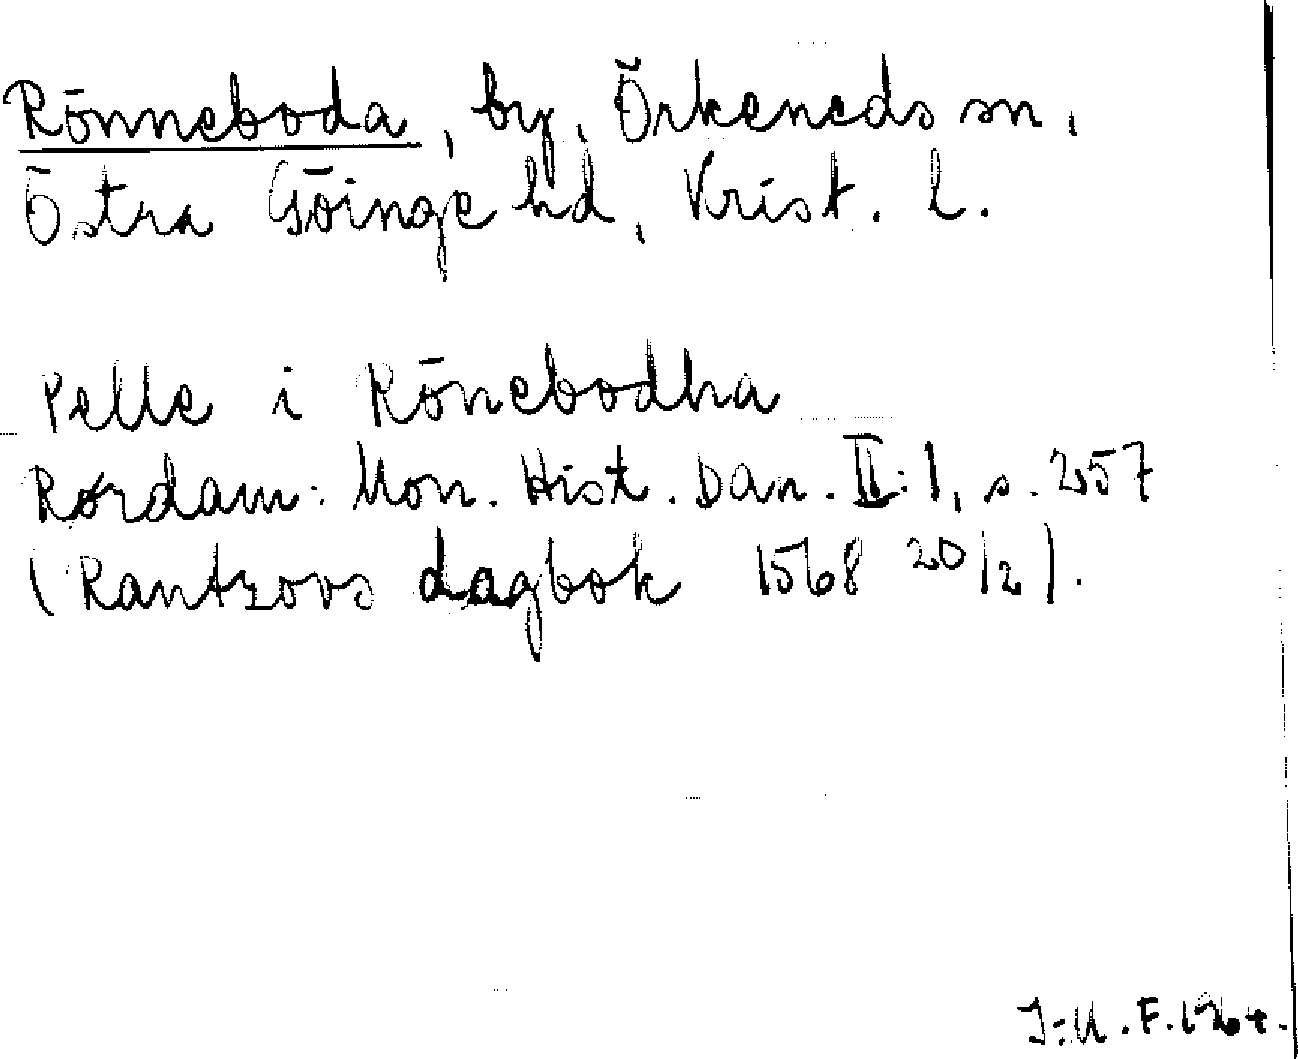 Rönneboda, by, Örkeneds sn,
Östra Göinge hd, Krist. l.
Pelle i Rönebodha
Rørdam: Mon. Hist. Dan. II:1, s. 257
(Rantzovs dagbok 1568 20/2).